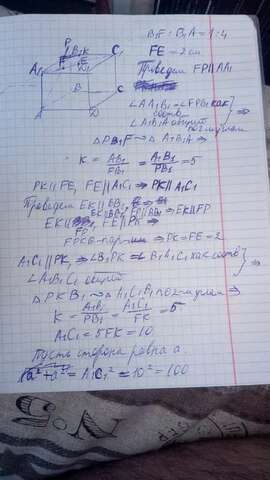 P
B₁ K
C₁
A₁
F E
D₁
B
C
A
D
B₁F : B₁A = 1:4
FE = 2 см
Проведем FP || AA₁
∠AA₁B₁ = ∠FPB₁ как
соотв
∠A₁B₁A общий
по 2 углам
△PB₁F ~ △A₁B₁A ⇒
K = AB₁/FB₁ = A₁B₁/PB₁ = 5
PK || FE, FE || A₁C₁ ⇒ PK || A₁C₁
Проведем EK || BB₁
EK || BB₁, FP || BB₁ ⇒ EK || FP
EK || FP, FE || PK ⇒
FPKE - пар-мм ⇒ PK = FE = 2
A₁C₁ || PK ⇒ ∠B₁PK = ∠B₁A₁C₁ как соотв
∠A₁B₁C₁ общий
△PKB₁ ~ △A₁C₁B₁ по 2 углам ⇒
K = A₁B₁/PB₁ = A₁C₁/FK = 5
A₁C₁ = 5FK = 10
Пусть сторона равна a
a² + a² = A₁C₁² = 10² = 100